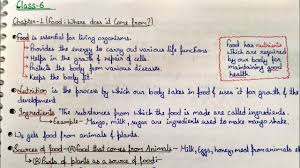 Class-6
Chapter-1 (Food: Where does it Come from?)
Food is essential for living organisms.
Provides the energy to carry out various life functions
Helps in the growth & repair of cells.
Protects the body from various diseases.
Keeps the body fit.
Food has nutrients
which are required
by our body for
maintaining good
health
Nutrition is the process by which our body takes in food & uses it for growth & the
development
Ingredients The substances from which the food is made are called ingredients.
Example - Mango, milk, sugar are ingredients used to make mango shake.
We get food from animals & plants.
Sources of food - (A) Food that comes from Animals - Milk, Eggs, honey, meat from animals
(B) Parts of plants as a source of food:-